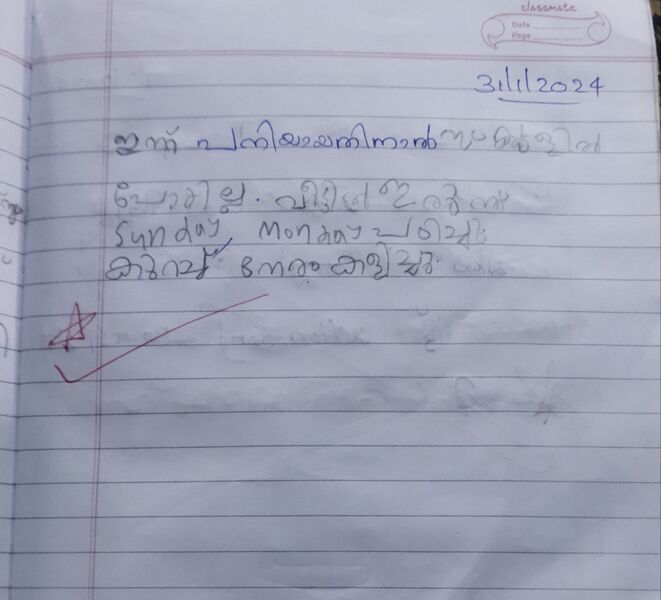 classmate
Date
Page
31/1/2024
ഇന്ന് പനിയായതിനാൽ സ്കൂളിൽ
പോയില്ല. വീട്ടിൽ ഇരുന്ന്
Sunday, Monday പഠിച്ചു.
കുറച്ച് നേരം കളിച്ചു.